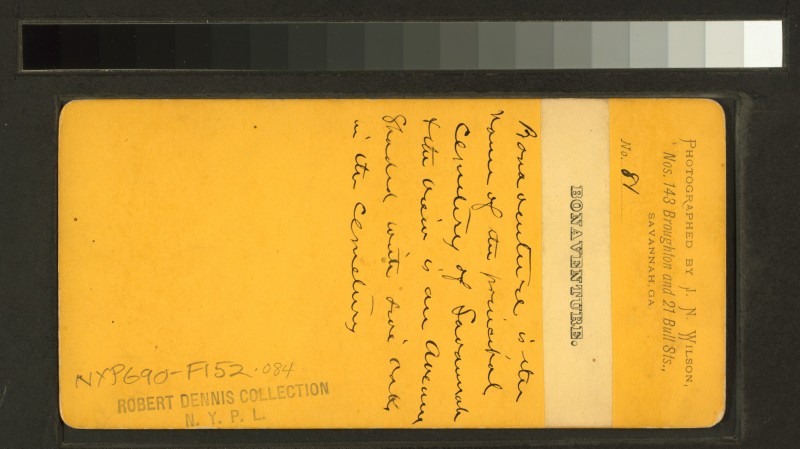 PHOTOGRAPHED BY J. N. WILSON,
Nos. 143 Broughton and 21 Bull Sts.,
SAVANNAH, GA
No. 81
BONAVENTURE.
Bonaventure is the
name of the principal
Cemetery of Savannah
& the view is an Avenue
Shaded with live oaks,
in the Cemetery
NYPG90-F152.084
ROBERT DENNIS COLLECTION
N. Y. P. L.